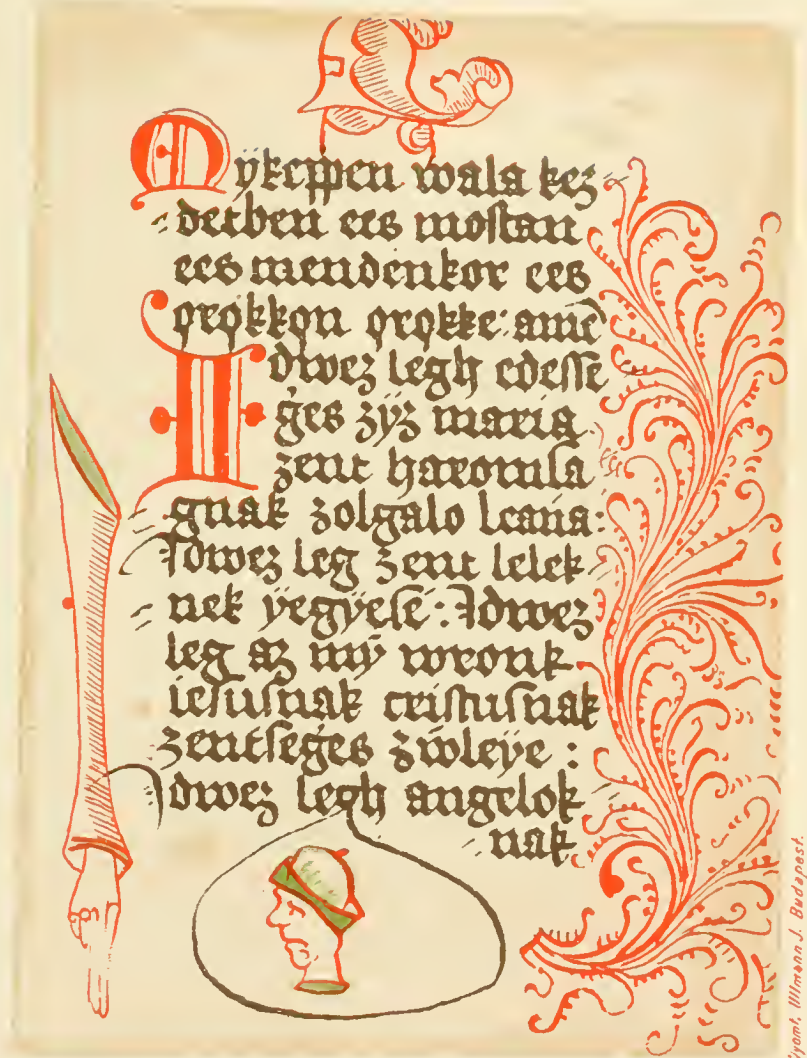 Mÿkeppen wala kez-
detben ees mostan
ees mendenkor ees
ọrọkkọn ọrọkke: amē
Idwez legh edesse
ges zÿz maria
zent haromsa
gnak zolgalo leana:
Idwez leg zent lelek-
nek ÿegÿese: Idwez
leg az mÿ wronk
iesusnak cristusnak
zentseges zwleÿe:
Idwez legh angelok
nak
Nyomt. Ullmann J. Budapest.